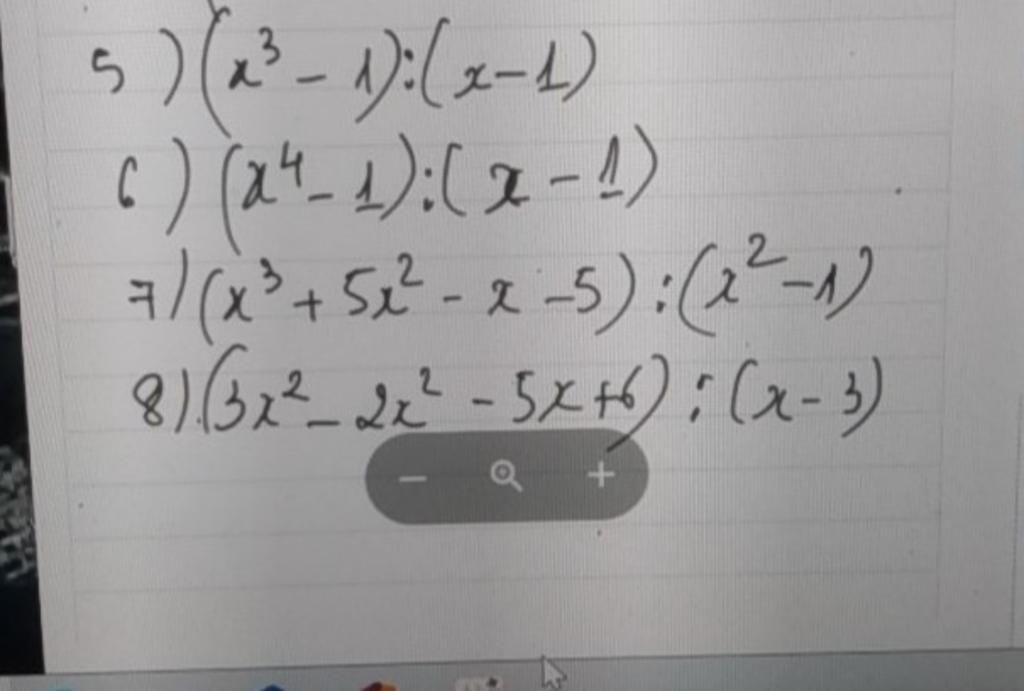 5) (x³ - 1):(x-1)
6) (x⁴ - 1):(x - 1)
7) (x³ + 5x² - x - 5) : (x² - 1)
8) (3x² - 2x² - 5x + 6) : (x - 3)